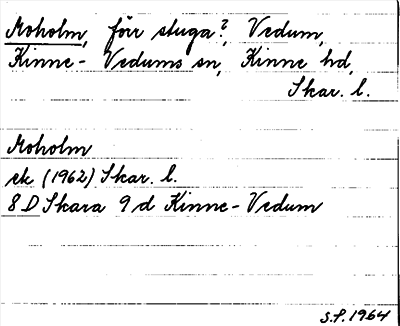 Moholm, förr stuga?, Vedum,
Kinne-Vedums sn, Kinne hd,
Skar. l.
Moholm
ek (1962) Skar. l.
8 D Skara 9 d Kinne-Vedum
S.F. 1964